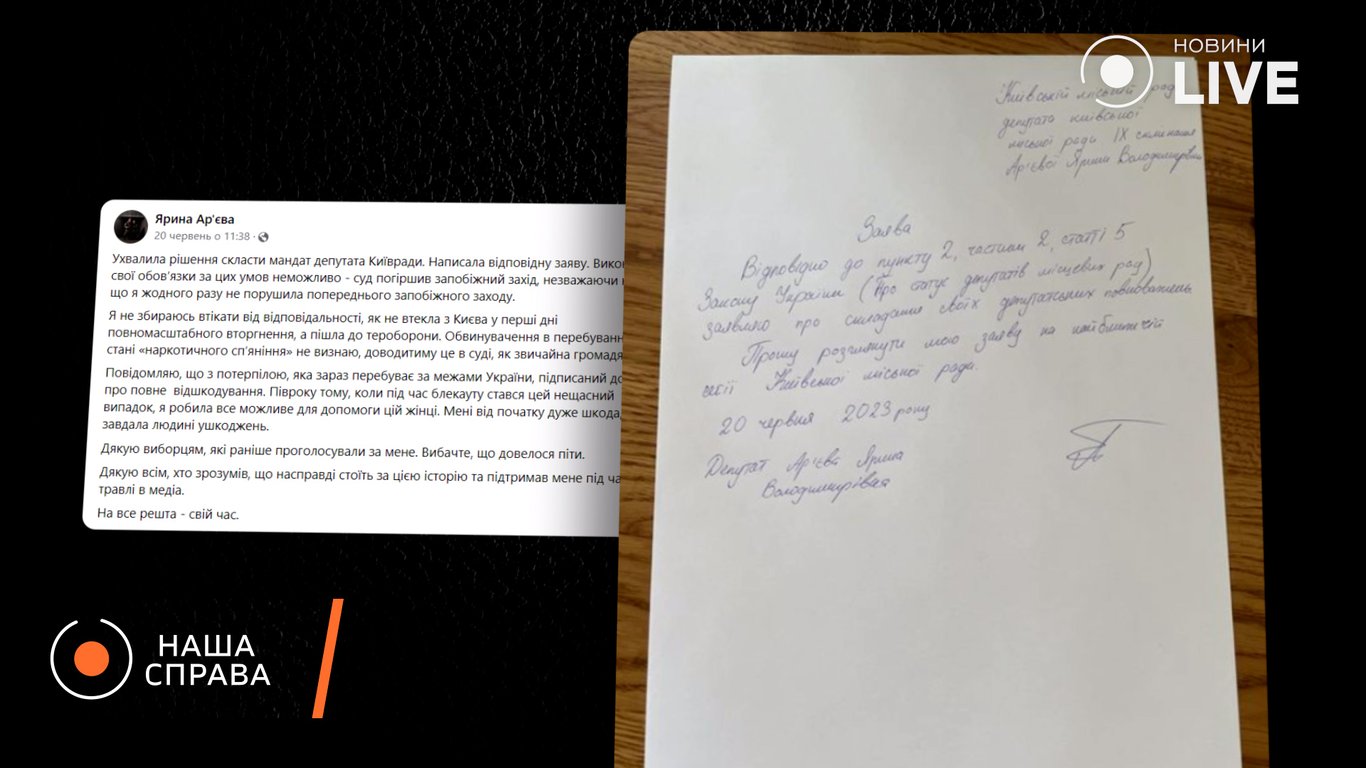 НОВИНИ
LIVE
Ярина Ар'єва
20 червень о 11:38
Ухвалила рішення скласти мандат депутата Київради. Написала відповідну заяву.
свої обов'язки за цих умов неможливо - суд погіршив запобіжний захід, незважаючи
що я жодного разу не порушила попереднього запобіжного заходу.
Я не збираюсь втікати від відповідальності, як не втекла з Києва у перші дні
повномасштабного вторгнення, а пішла до тероборони. Обвинувачення в перебуванн
стані «наркотичного сп'яніння» не визнаю, доводитиму це в суді, як звичайна громадя
Повідомляю, що з потерпілою, яка зараз перебуває за межами України, підписаний до
про повне відшкодування. Півроку тому, коли під час блекауту стався цей нещасний
випадок, я робила все можливе для допомоги цій жінці. Мені від початку дуже шкода,
завдала людині ушкоджень.
Дякую виборцям, які раніше проголосували за мене. Вибачте, що довелося піти.
Дякую всім, хто зрозумів, що насправді стоїть за цією історію та підтримав мене під ча
травлі в медіа.
На все решта - свій час.
Київській міській рад
депутата київської
міської ради IX скликання
Ар'євої Ярини Володимирівни
Заява
Відповідно до пункту 2, частини 2, статті 5
Закону України (Про статус депутатів місцевих рад)
заявляю про складання своїх депутатських повноважень
Прошу розглянути мою заяву на найближчій
сесії Київської міської ради.
20 червня 2023 року
Депутат Ар'єва Ярина
Володимирівна
НАША
СПРАВА